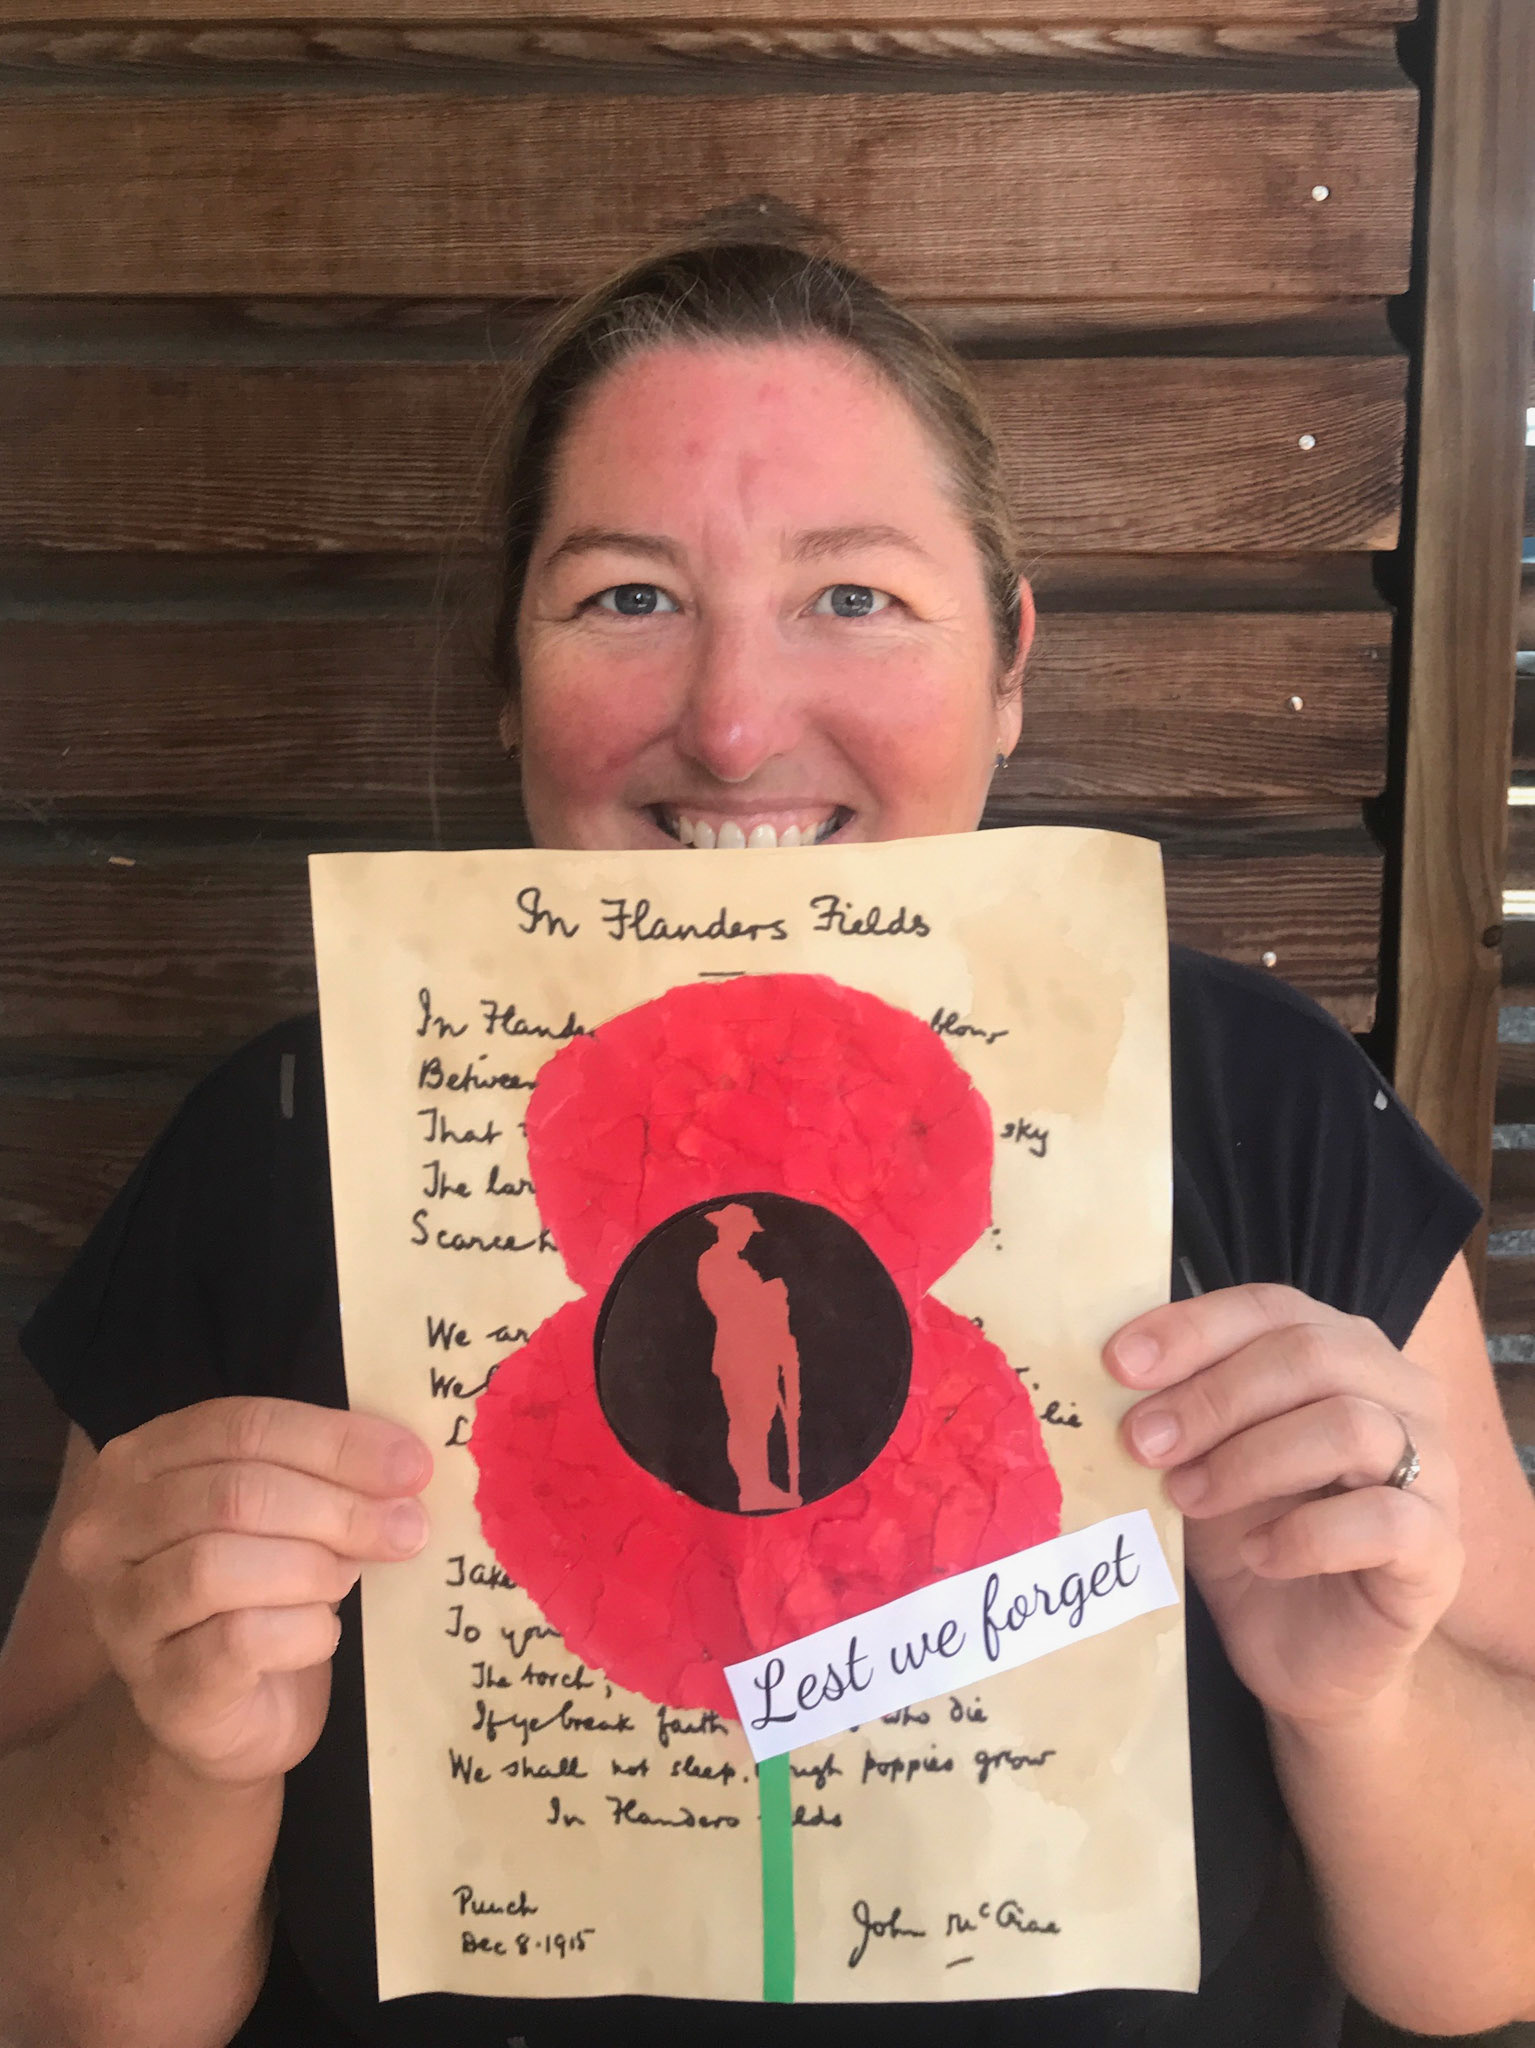 In Flanders Fields
In Flande blow
Between
That sky
The lar
Scarce h
We ar
We
L lie
Take
To you
The torch;
If ye break faith who die
We shall not sleep, ugh poppies grow
In Flanders elds
Lest we forget
Punch
Dec 8·1915
John McCrae